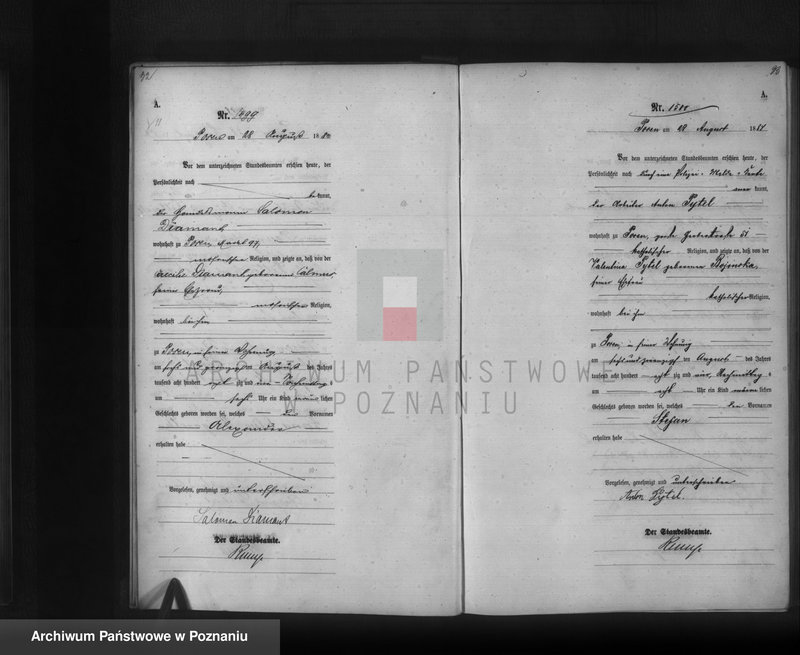 32
A.
Nr. 1499
Posen am 28 August 188
Vor dem unterzeichneten Standesbeamten erschien heute, der
Persönlichkeit nach
bekannt,
der Handelsmann Salomon
Diamant
wohnhaft zu Posen, Markt 94,
mosaischer Religion, und zeigte an, daß von der
Caecilie Diamant geborenen
seiner Ehefrau,
mosaischer Religion,
wohnhaft bei ihm
zu Posen, in seiner Wohnung
am sechs und zwanzigsten August des Jahres
tausend acht hundert acht zig und vier Nachmittags
um sechs Uhr ein Kind männlichen
Geschlechts geboren worden sei, welches den Vornamen
Alexander
erhalten habe
Vorgelesen, genehmigt und unterschrieben
Salomon Diamant
Der Standesbeamte.
33
A.
Nr. 1500
Posen am 28 August 1884
Vor dem unterzeichneten Standesbeamten erschien heute, der
Persönlichkeit nach durch eine Polizei-Melde-Karte
anerkannt,
der Arbeiter Anton Pytel
wohnhaft zu Posen, große Gerberstraße 51
katholischer Religion, und zeigte an, daß von der
Valentine Pytel geborenen
seiner Ehefrau
katholischer Religion,
wohnhaft bei ihm
zu Posen, in seiner Wohnung
am sechs und zwanzigsten August des Jahres
tausend acht hundert acht zig und vier, Nachmittags
um acht Uhr ein Kind männlichen
Geschlechts geboren worden sei, welches den Vornamen
Stefan
erhalten habe
Vorgelesen, genehmigt und unterschrieben
Anton Pytel.
Der Standesbeamte.
ARCHIWUM PAŃSTWOWE
W POZNANIU
Archiwum Państwowe w Poznaniu